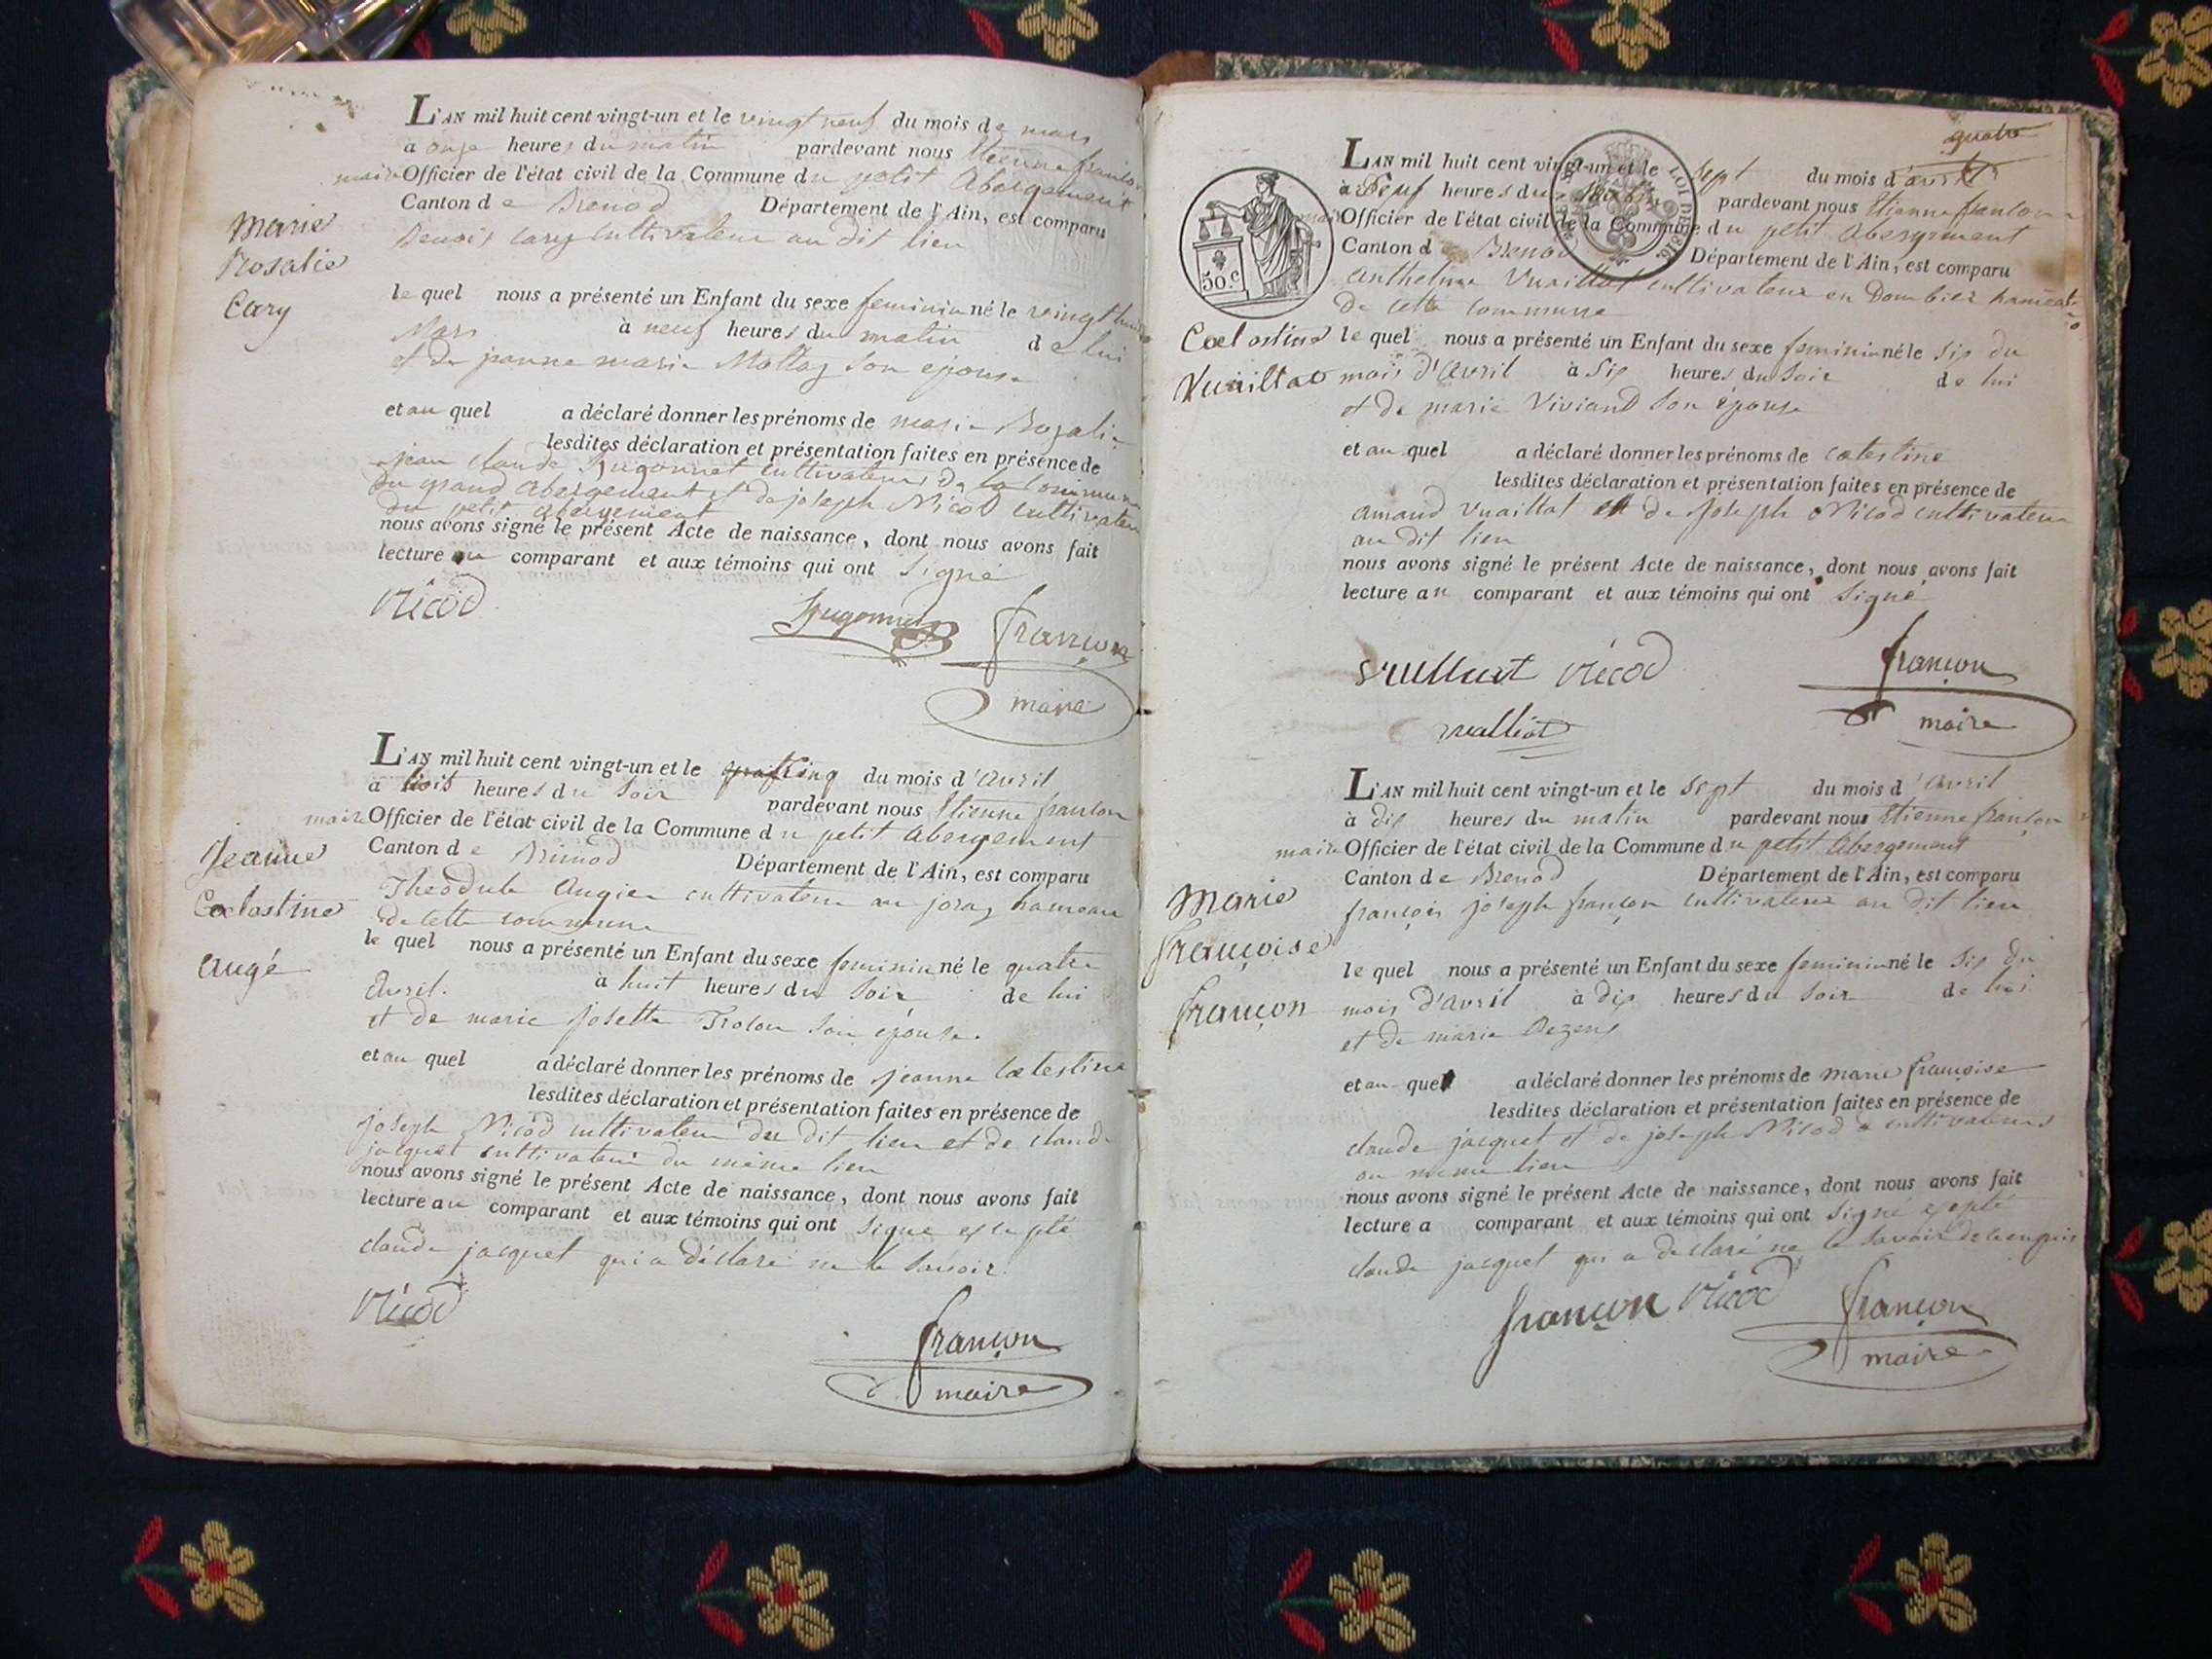 L'AN mil huit cent vingt-un et le vingt neuf du mois de mars
à onze heures du matin pardevant nous Etienne françon
maire Officier de l'état civil de la Commune du petit Abergement
Canton de Brenod Département de l'Ain, est comparu
Benoit Cary cultivateur au dit lieu
Marie
Rosalie
Cary
le quel nous a présenté un Enfant du sexe feminin né le vingt huit
Mars à neuf heures du matin de lui
et de jeanne marie Mottaz son epouse
et au quel a déclaré donner les prénoms de marie Rozalie
lesdites déclaration et présentation faites en présence de
jean claude hugonnet cultivateur de la commune
du grand abergement et de joseph Nicod cultivateur
du petit abergement
nous avons signé le présent Acte de naissance, dont nous avons fait
lecture au comparant et aux témoins qui ont signé
Nicod
hugonnet
françon
maire
L'AN mil huit cent vingt-un et le cinq du mois d'avril
à huit heures du soir pardevant nous Etienne françon
maire Officier de l'état civil de la Commune du petit abergement
Canton de Brenod Département de l'Ain, est comparu
Theodule Augier cultivateur au joraz hameau
de cette commune
Jeanne
Coelestine
Augé
le quel nous a présenté un Enfant du sexe feminin né le quatre
Avril. à huit heures du soir de lui
et de marie josette Trolou son épouse.
et au quel a déclaré donner les prénoms de jeanne Coelestine
lesdites déclaration et présentation faites en présence de
joseph Nicod cultivateur du dit lieu et de claude
jacquet cultivateur du même lieu
nous avons signé le présent Acte de naissance, dont nous avons fait
lecture au comparant et aux témoins qui ont signé excepté
claude jacquet qui a déclaré ne le savoir
Nicod
françon
maire
quatre
L'AN mil huit cent vingt-un et le sept du mois d'avril
à neuf heures du pardevant nous Etienne françon
maire Officier de l'état civil de la Commune du petit abergement
Canton de Brenod Département de l'Ain, est comparu
50 c
LOI DE 1816
anthelme Vuaillat cultivateur en Dombier hameau
de cette commune
Coelestine
Vuaillat
le quel nous a présenté un Enfant du sexe feminin né le six du
mois d'Avril à six heures du soir de lui
et de marie Viviand son épouse
et au quel a déclaré donner les prénoms de coelestine
lesdites déclaration et présentation faites en présence de
amand Vuaillat et de joseph Nicod cultivateur
au dit lieu
nous avons signé le présent Acte de naissance, dont nous avons fait
lecture au comparant et aux témoins qui ont signé
Nicod
françon
maire
L'AN mil huit cent vingt-un et le sept du mois d'avril
à dix heures du matin pardevant nous Etienne françon
maire Officier de l'état civil de la Commune du petit Abergement
Canton de Brenod Département de l'Ain, est comparu
françois joseph françon cultivateur au dit lieu
Marie
françoise
françon
le quel nous a présenté un Enfant du sexe feminin né le six du
mois d'avril à dix heures du soir de lui
et de marie
et au quel a déclaré donner les prénoms de marie françoise
lesdites déclaration et présentation faites en présence de
claude jacquet et de joseph Nicod cultivateurs
au même lieu
nous avons signé le présent Acte de naissance, dont nous avons fait
lecture a comparant et aux témoins qui ont signé excepté
claude jacquet qui a declaré ne le savoir
françon Nicod
françon
maire